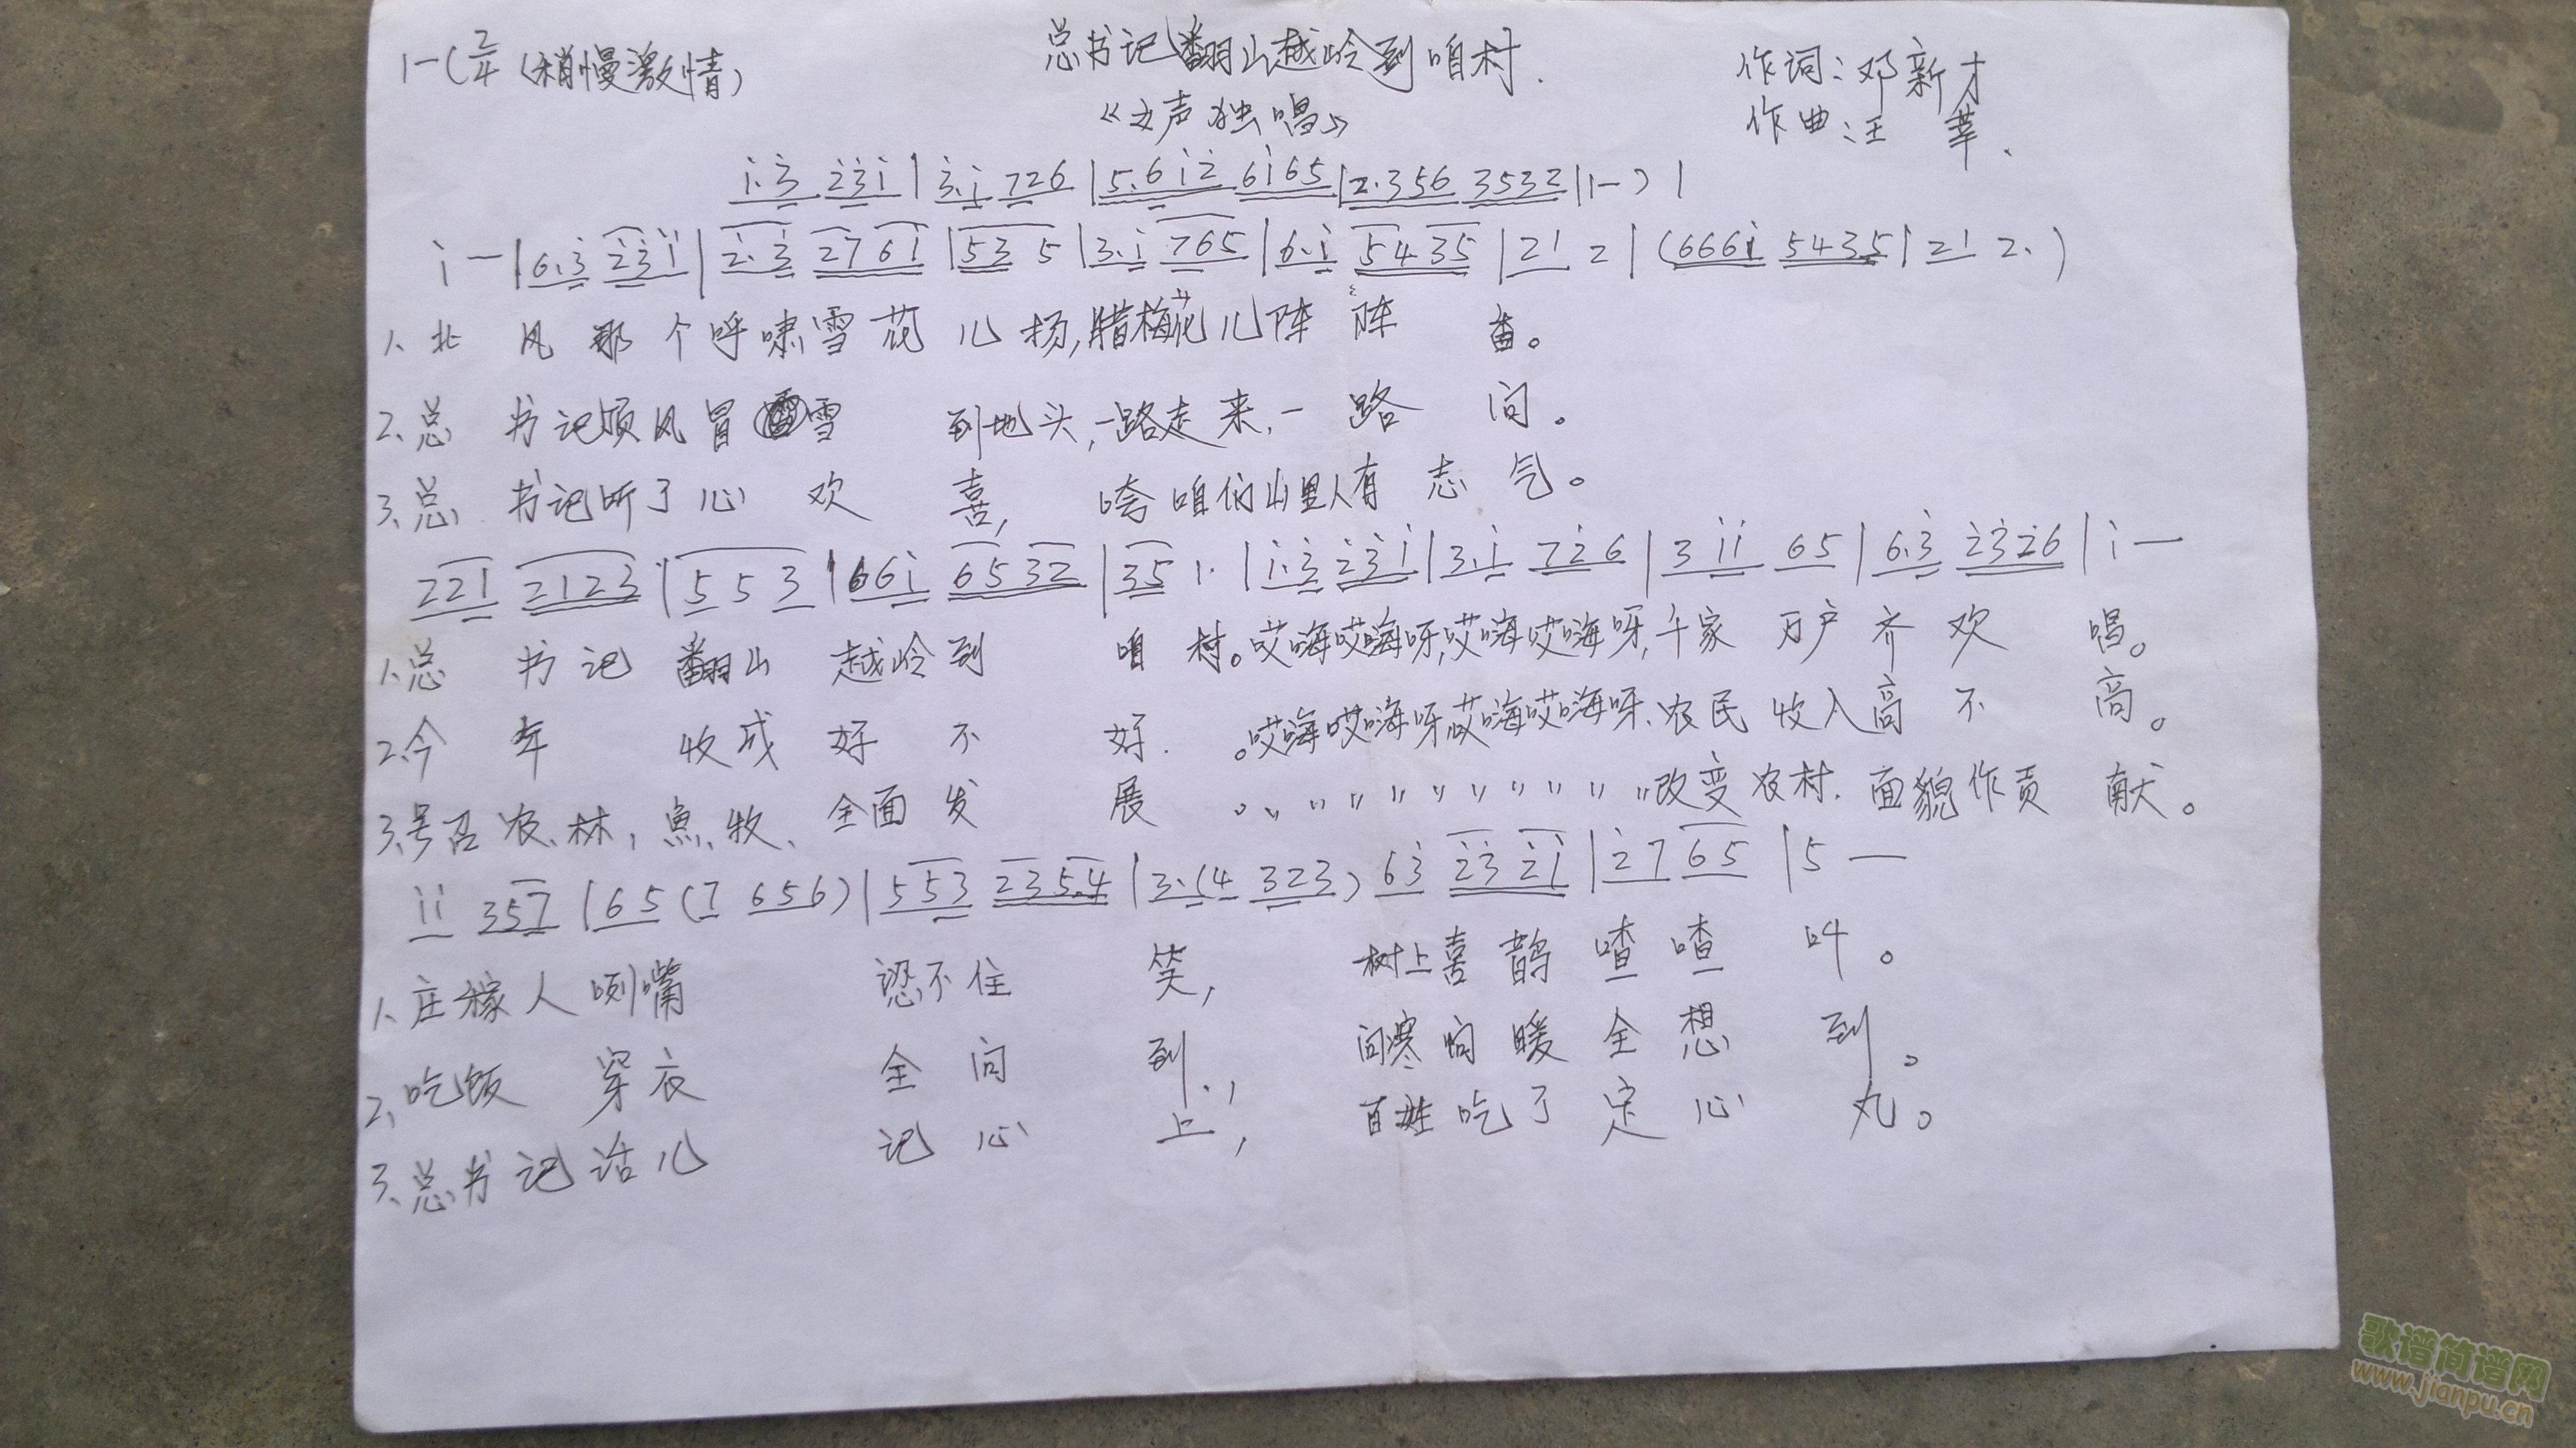 总书记翻山越岭到咱村.
1-(2/4 (稍慢激情)
作词:邓新才
《女声独唱》
作曲:王 莘.
i.3̇ 2̇3̇i | 3̇.i 72̇6 | 5.6i2̇ 6i65 | 2.356 3532 | 1-) |
i - | 6.3̇ 2̇3̇i | 2̇.3̇ 2̇76i | 53 5 | 3.i 765 | 6.i 5435 | 21 2 | (666i 5435 | 21 2.)
1、北风那个呼啸雪花儿扬,腊梅花儿阵阵香。
2、总书记顶风冒雪到地头,一路走来,一路问。
3、总书记听了心欢喜,夸咱们山里人有志气。
221 2123 | 5 5 3 | 66i 6532 | 35 1. | i.3̇ 2̇3̇i | 3̇.i 72̇6 | 3 ii 65 | 6.3̇ 2̇3̇2̇6 | i -
1、总书记翻山越岭到咱村。哎嗨哎嗨呀,哎嗨哎嗨呀,千家万户齐欢唱。
2、今年收成好不好.。哎嗨哎嗨呀哎嗨哎嗨呀、农民收入高不高。
3、号召农、林,魚、牧、全面发展。〃〃〃〃〃〃〃〃〃〃改变农村.面貌作贡献。
ii 357 | 65(7 656) | 553 235.4 | 3.(4 323) 63̇ 2̇3̇2̇i | 2̇7 65 | 5 —
1、庄稼人咧嘴忍不住笑,树上喜鹊喳喳叫。
2、吃饭穿衣全问到.,问寒问暖全想到。
3、总书记话儿记心上,百姓吃了定心丸。
歌谱简谱网
www.jianpu.cn